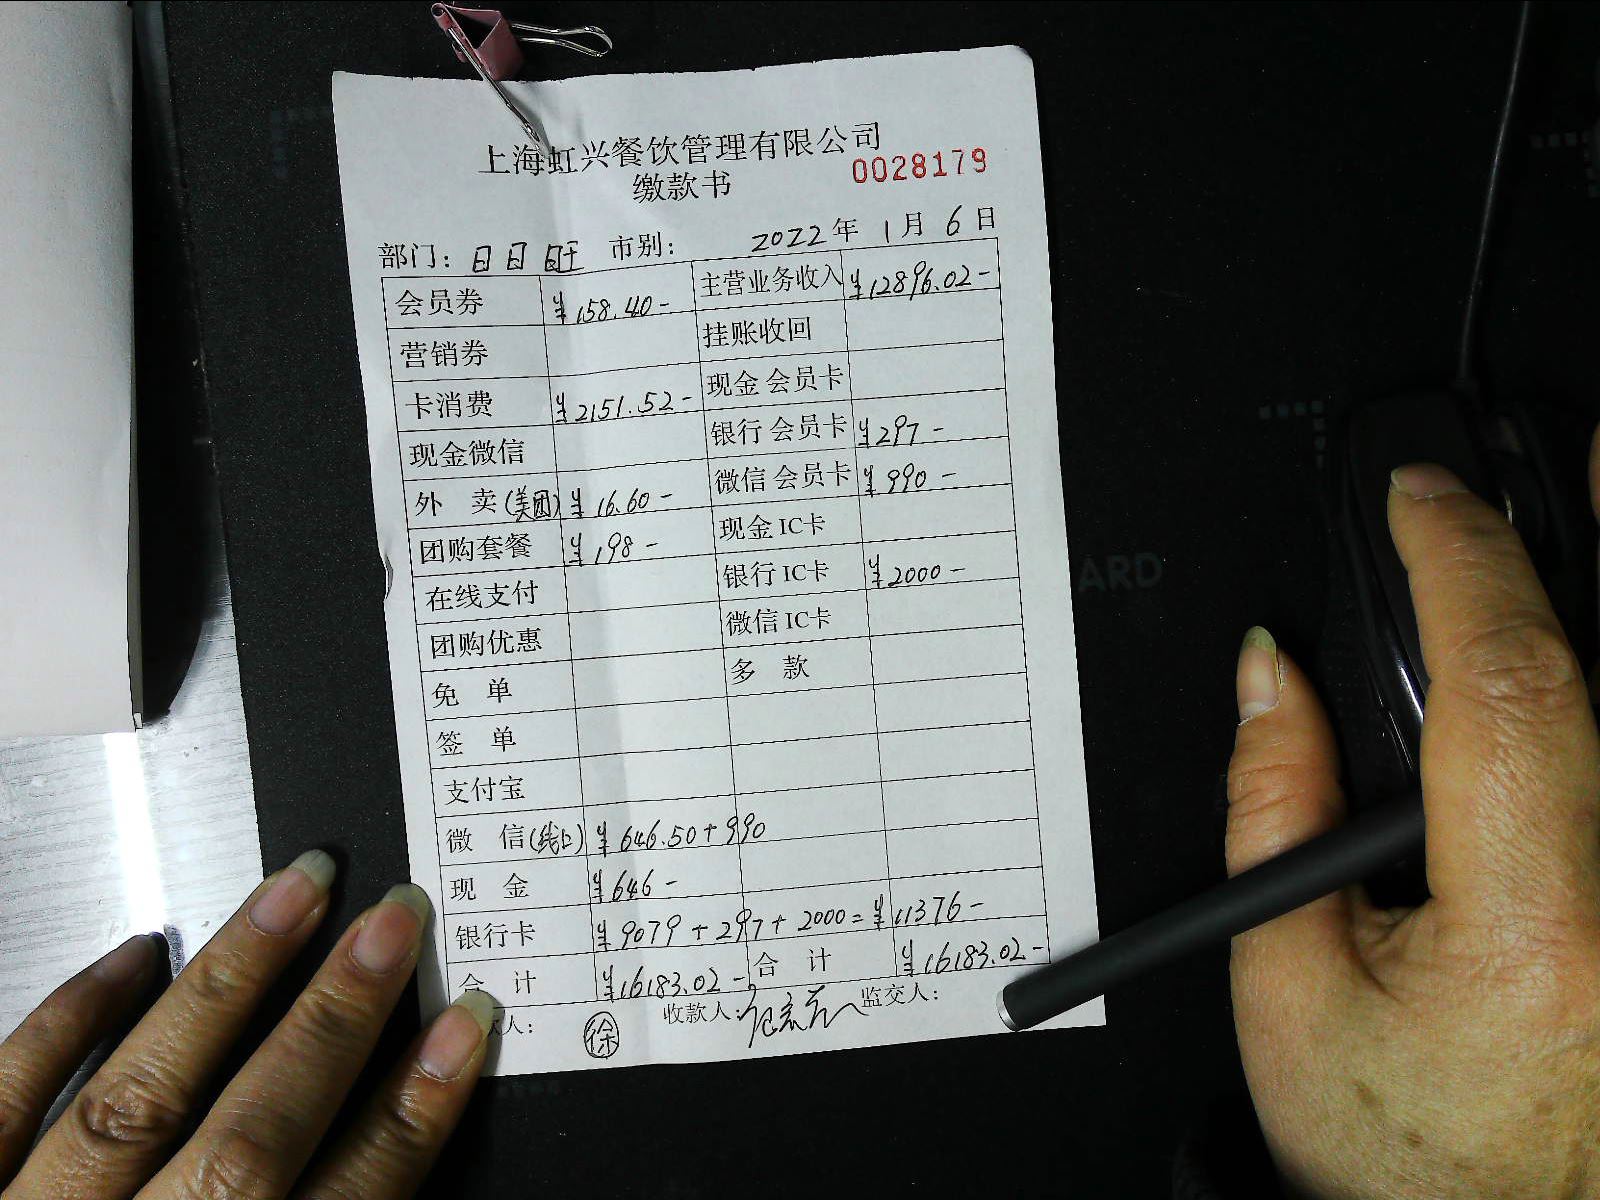 上海虹兴餐饮管理有限公司
缴款书 0028179
部门: 日日旺 市别: 2022年 1月 6日
会员券 ¥158.40- 主营业务收入 ¥12896.02-
营销券 挂账收回
卡消费 ¥2151.52- 现金会员卡
现金微信 银行会员卡 ¥297-
外 卖(美团) ¥16.60- 微信会员卡 ¥990-
团购套餐 ¥198- 现金IC卡
在线支付 银行IC卡 ¥2000-
团购优惠 微信IC卡
免 单 多 款
签 单
支付宝
微 信(线上) ¥646.50+990
现 金 ¥646-
银行卡 ¥9079+297+2000=¥11376-
合 计 ¥16183.02- 合 计 ¥16183.02-
款人: 徐 收款人: 监交人:
ARD